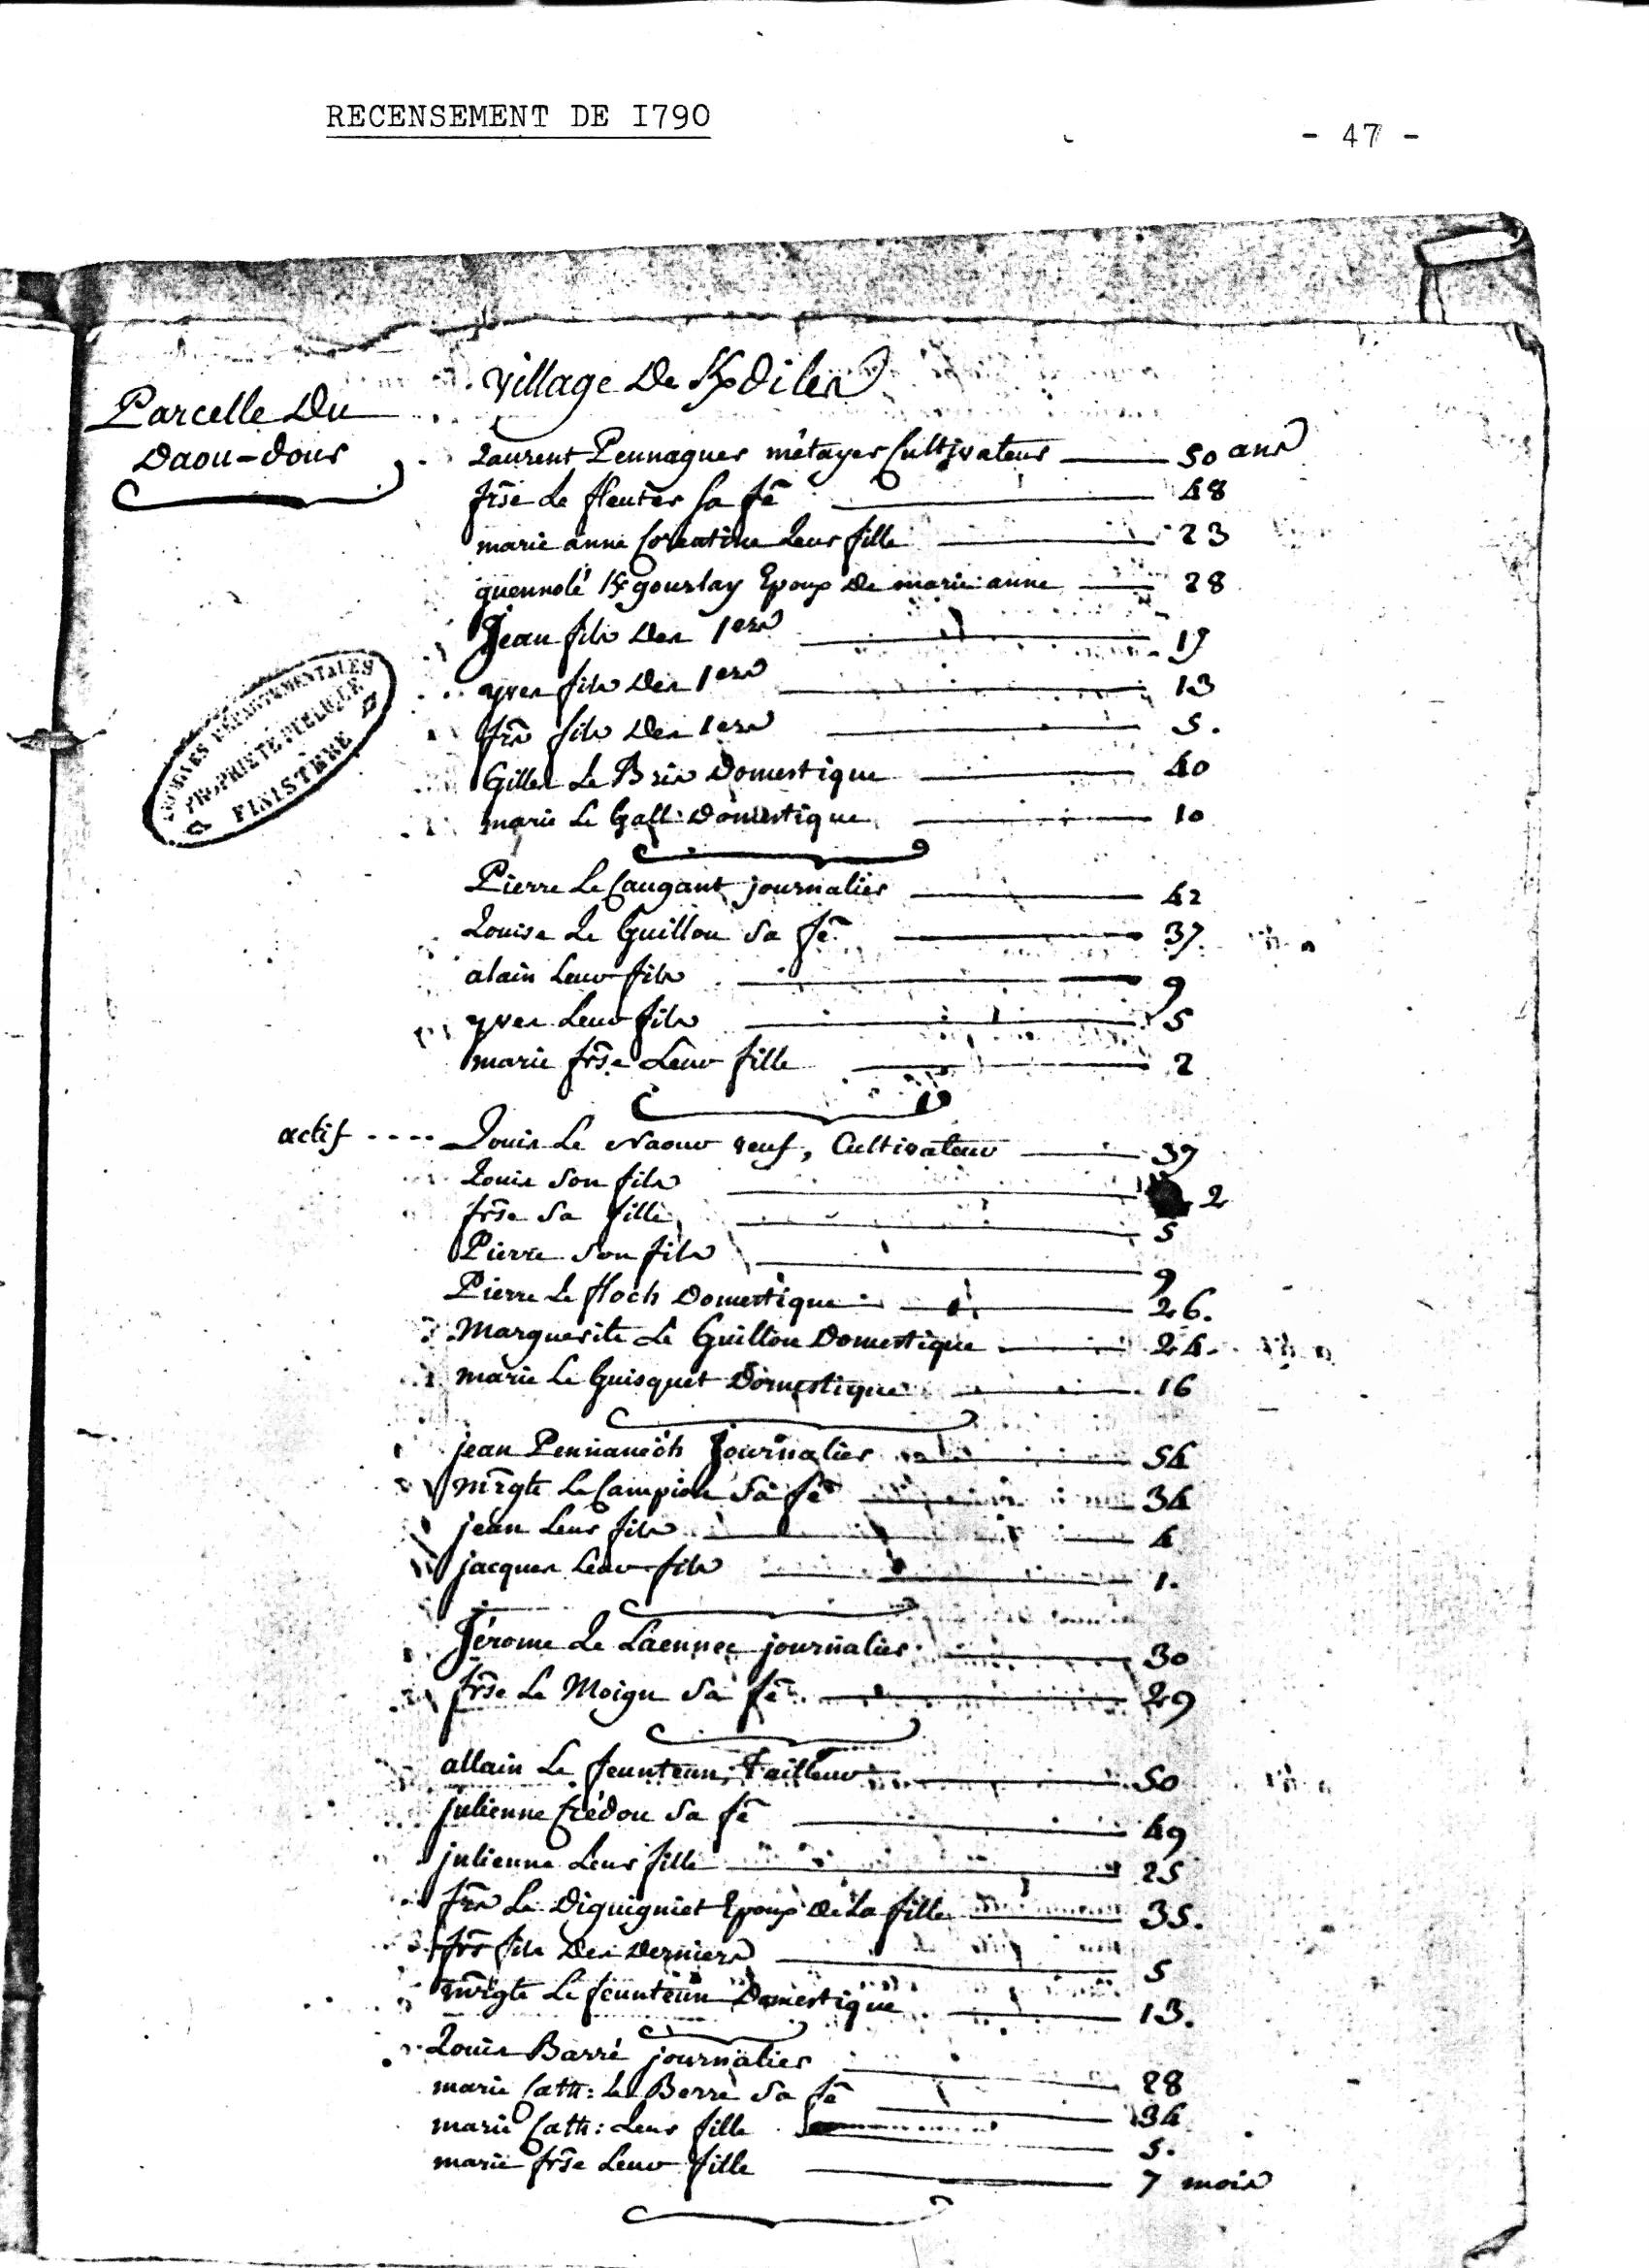 RECENSEMENT DE I790
- 47 -
village De K/dilen
Parcelle Du
Daou-dour
Laurent Pennaguer métayer Cultivateur 50 ans
frse Le fleuter sa fe 48
marie anne Corentine Leur fille 23
guennolé K/gourlay Epoux De marie anne 28
Jean fils Des 1ers 19
yves fils Des 1ers 13
frs fils Des 1ers 5.
Gilles Le Bris Domestique 40
marie Le Gall Domestique 10
Pierre Le Caugant journalier 42
Louise Le Guillou Sa fe 37
alain Leur fils 9
yves Leur fils 5
marie frse Leur fille 2
actif .... Louis Le Naour veuf, Cultivateur 37
Louis Son fils 2
frse Sa fille 5
Pierre Son fils 9
Pierre Le floch Domestique 26.
Marguerite Le Guillou Domestique 24.
marie Le Guisquet Domestique 16
jean Pennanech Journalier 54
mrgte Le Campion Sa fe 34
jean Leur fils 4
jacques Leur fils 1.
Jérome Le Laennec journalier 30
frse Le Moign Sa fe 29
allain Le feunteun, Tailleur 50
julienne Crédou Sa fe 49
julienne Leur fille 25
frs Le Diguigniet Epoux De La fille 35.
frs fils Des Derniers 5
mrgte Le feunteun Domestique 13.
Louis Barré journalier 28
marie Cath: Le Berre Sa fe 34
marie Cath: Leur fille 5.
marie frse Leur fille 7 mois
ARCHIVES DÉPARTEMENTALES
PROPRIÉTÉ PUBLIQUE
FINISTÈRE